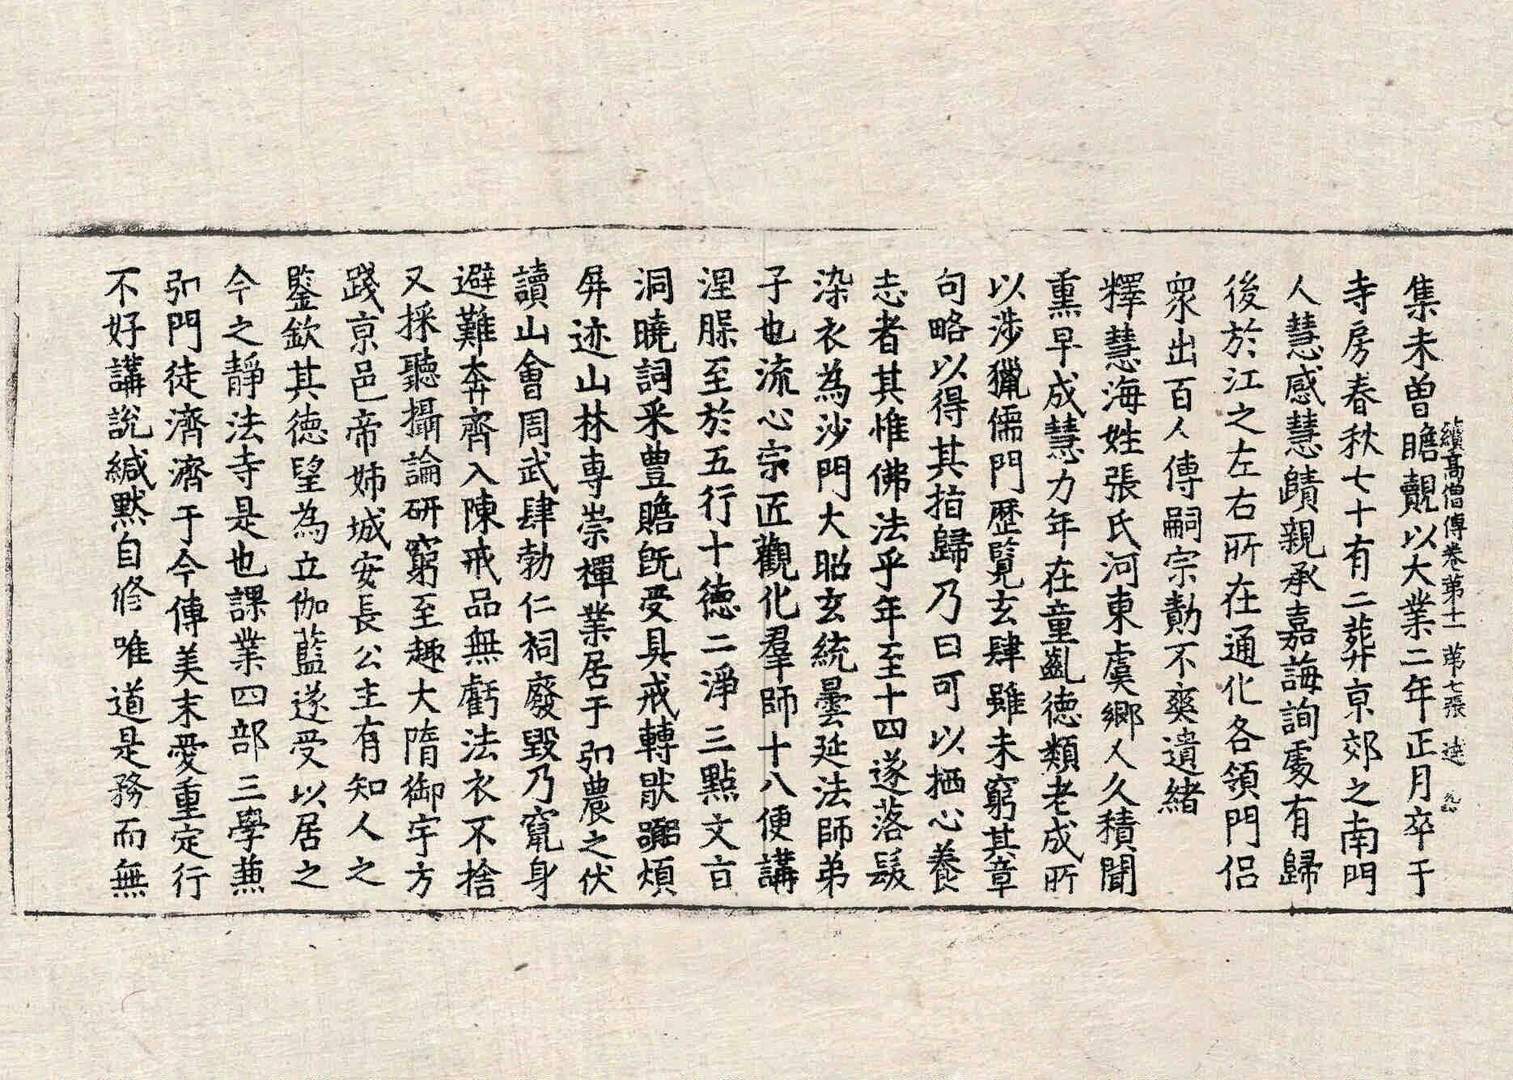 續高僧傳卷第十一 第七張 達
集未曽瞻覿以大業二年正月卒于
寺房春秋七十有二葬京郊之南門
人慧感慧賾親承嘉誨詢處有歸
後於江之左右所在通化各領門侣
衆出百人傳嗣宗勣不爽遺緒
釋慧海姓張氏河東虞鄉人久積聞
熏早成慧力年在童齓德類老成所
以涉獵儒門歷覽玄肆雖未窮其章
句略以得其指歸乃曰可以栖心養
志者其惟佛法乎年至十四遂落髮
染衣為沙門大昭玄統曇延法師弟
子也流心宗匠觀化羣師十八便講
涅槃至於五行十德二淨三點文言
洞曉詞采豊贍旣受具戒轉猒囂煩
屏迹山林専崇禪業居于弘農之伏
讀山會周武肆勃仁祠廢毀乃竄身
避難奔齊入陳戒品無虧法衣不捨
又採聽攝論研窮至趣大隋御宇方
踐京邑帝姊城安長公主有知人之
鑒欽其徳望為立伽藍遂受以居之
今之靜法寺是也課業四部三學兼
弘門徒濟濟于今傳美末愛重定行
不好講說緘默自修唯道是務而無